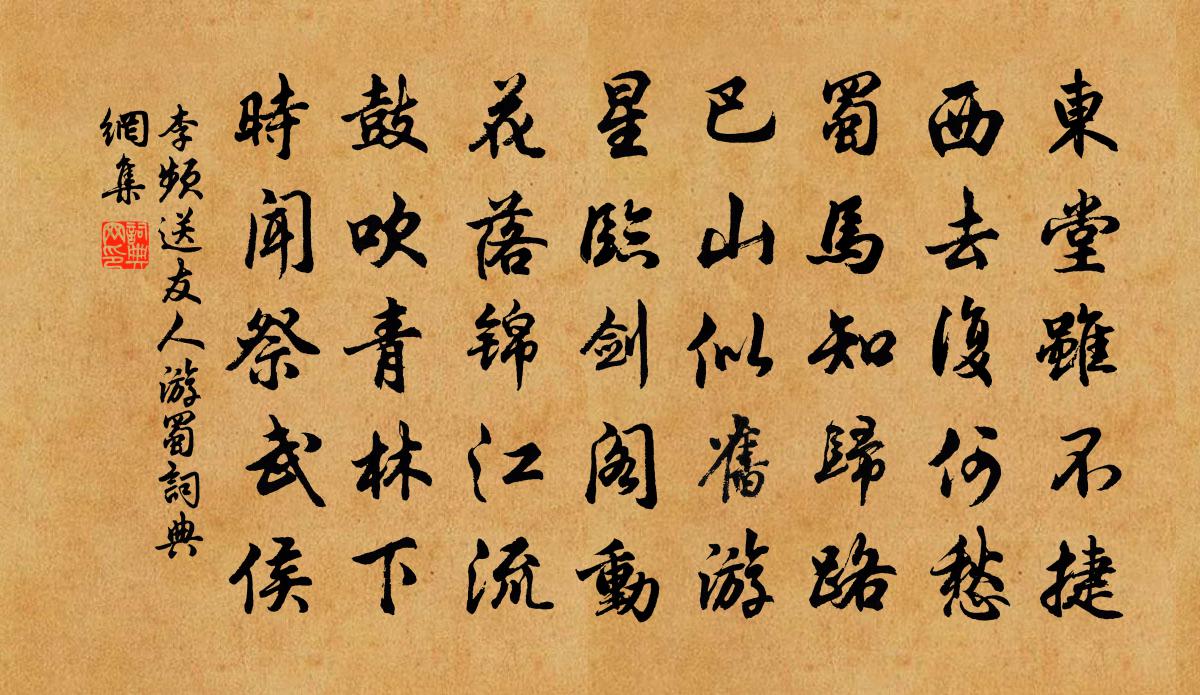 東堂雖不捷
西去復何愁
蜀馬知歸路
巴山似舊游
星臨劍閣動
花落锦江流
鼓吹青林下
時聞祭武侯
李頻送友人游蜀詞典
網集
詞典
网印